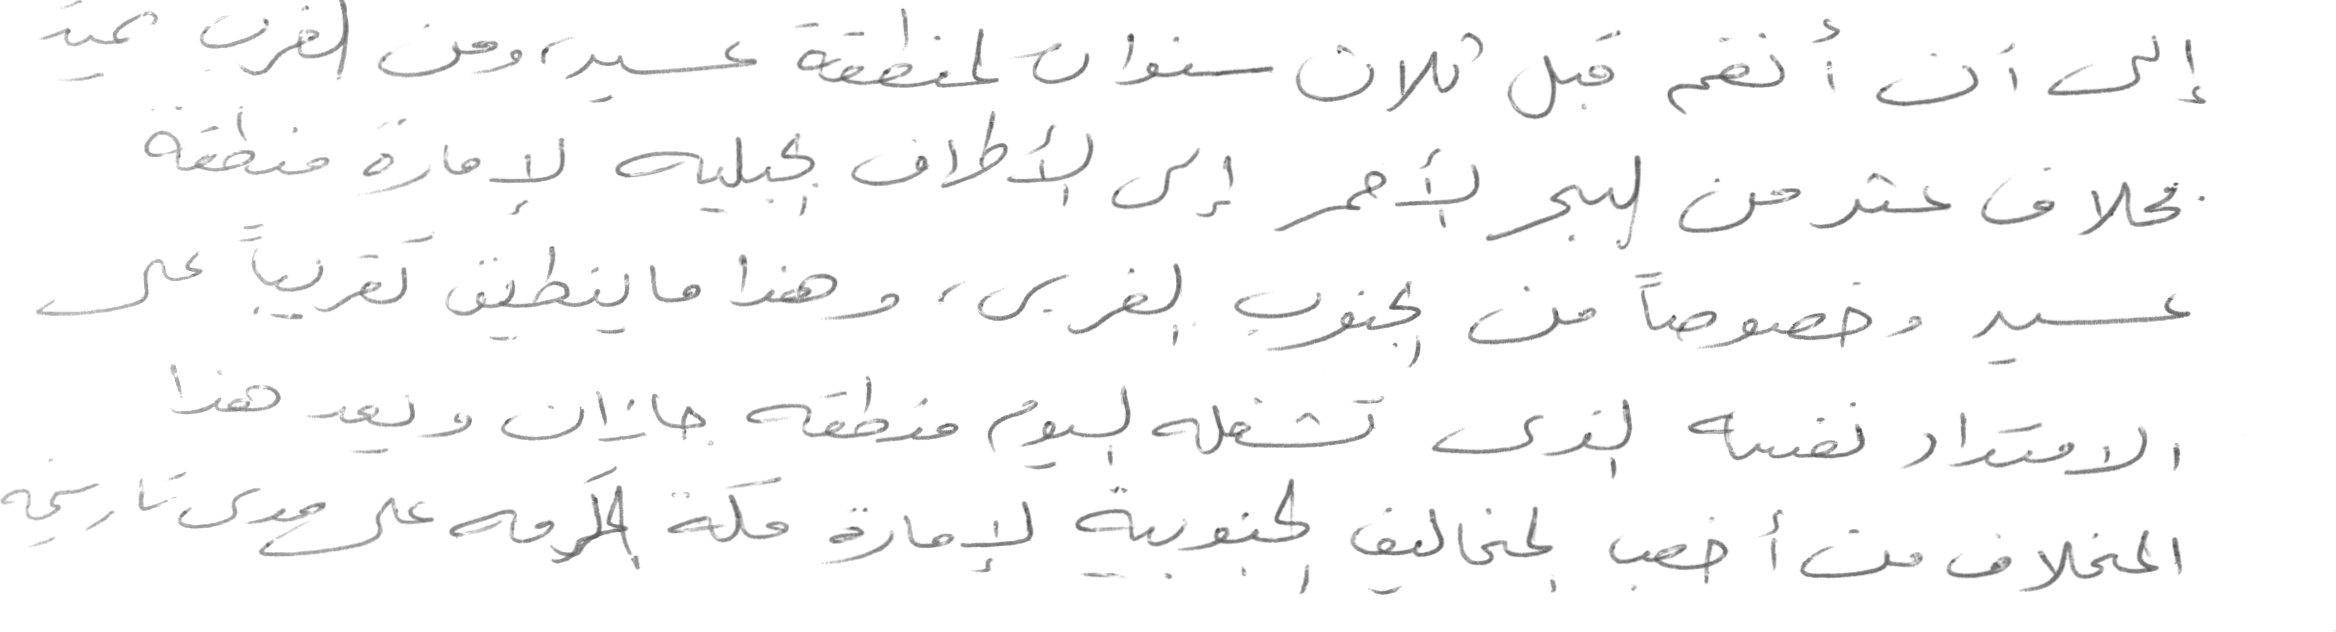 إلى أن أنضم قبل ثلاث سنوات لمنطقة عسير، ومن الغرب يمتد
مخلاف عثر من البحر الأحمر إلى الأطراف الجبليه لإمارة منطقة
عسير وخصوصاً من الجنوب الغربى، وهذا ماينطبق تقريباً على
الامتداد نفسه الذى تشغله اليوم منطقه جازان ويعد هذا
المخلاف من أخصب المخاليف الجنوبية لإمارة مكة المكرمه على مدى تاريخه